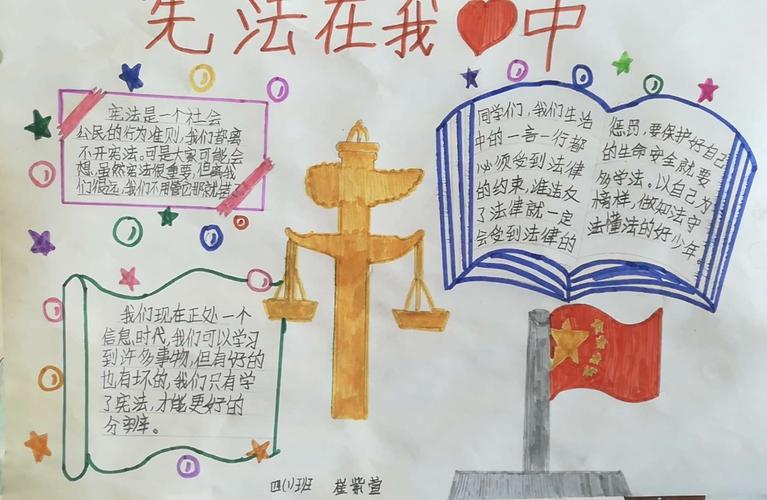 宪法在我中
宪法是一个社会
公民的行为准则,我们都离
不开宪法。可是大家可能会
想,虽然宪法很重要,但离我
们很远,我们不用管它那就错
同学们,我们生活
中的一言一行都
必须受到法律
的约束,谁法反
了法律就一定
会受到法律的
惩罚,要保护好自己
的生命安全就要
多学法。以自己为
榜样,做知法守
法懂法的好少年。
我们现在正处一个
信息时代,我们可以学习
到许多事物,但有好的
也有坏的,我们只有学
了宪法,才能更好的
分辨。
四(1)班 崔紫萱